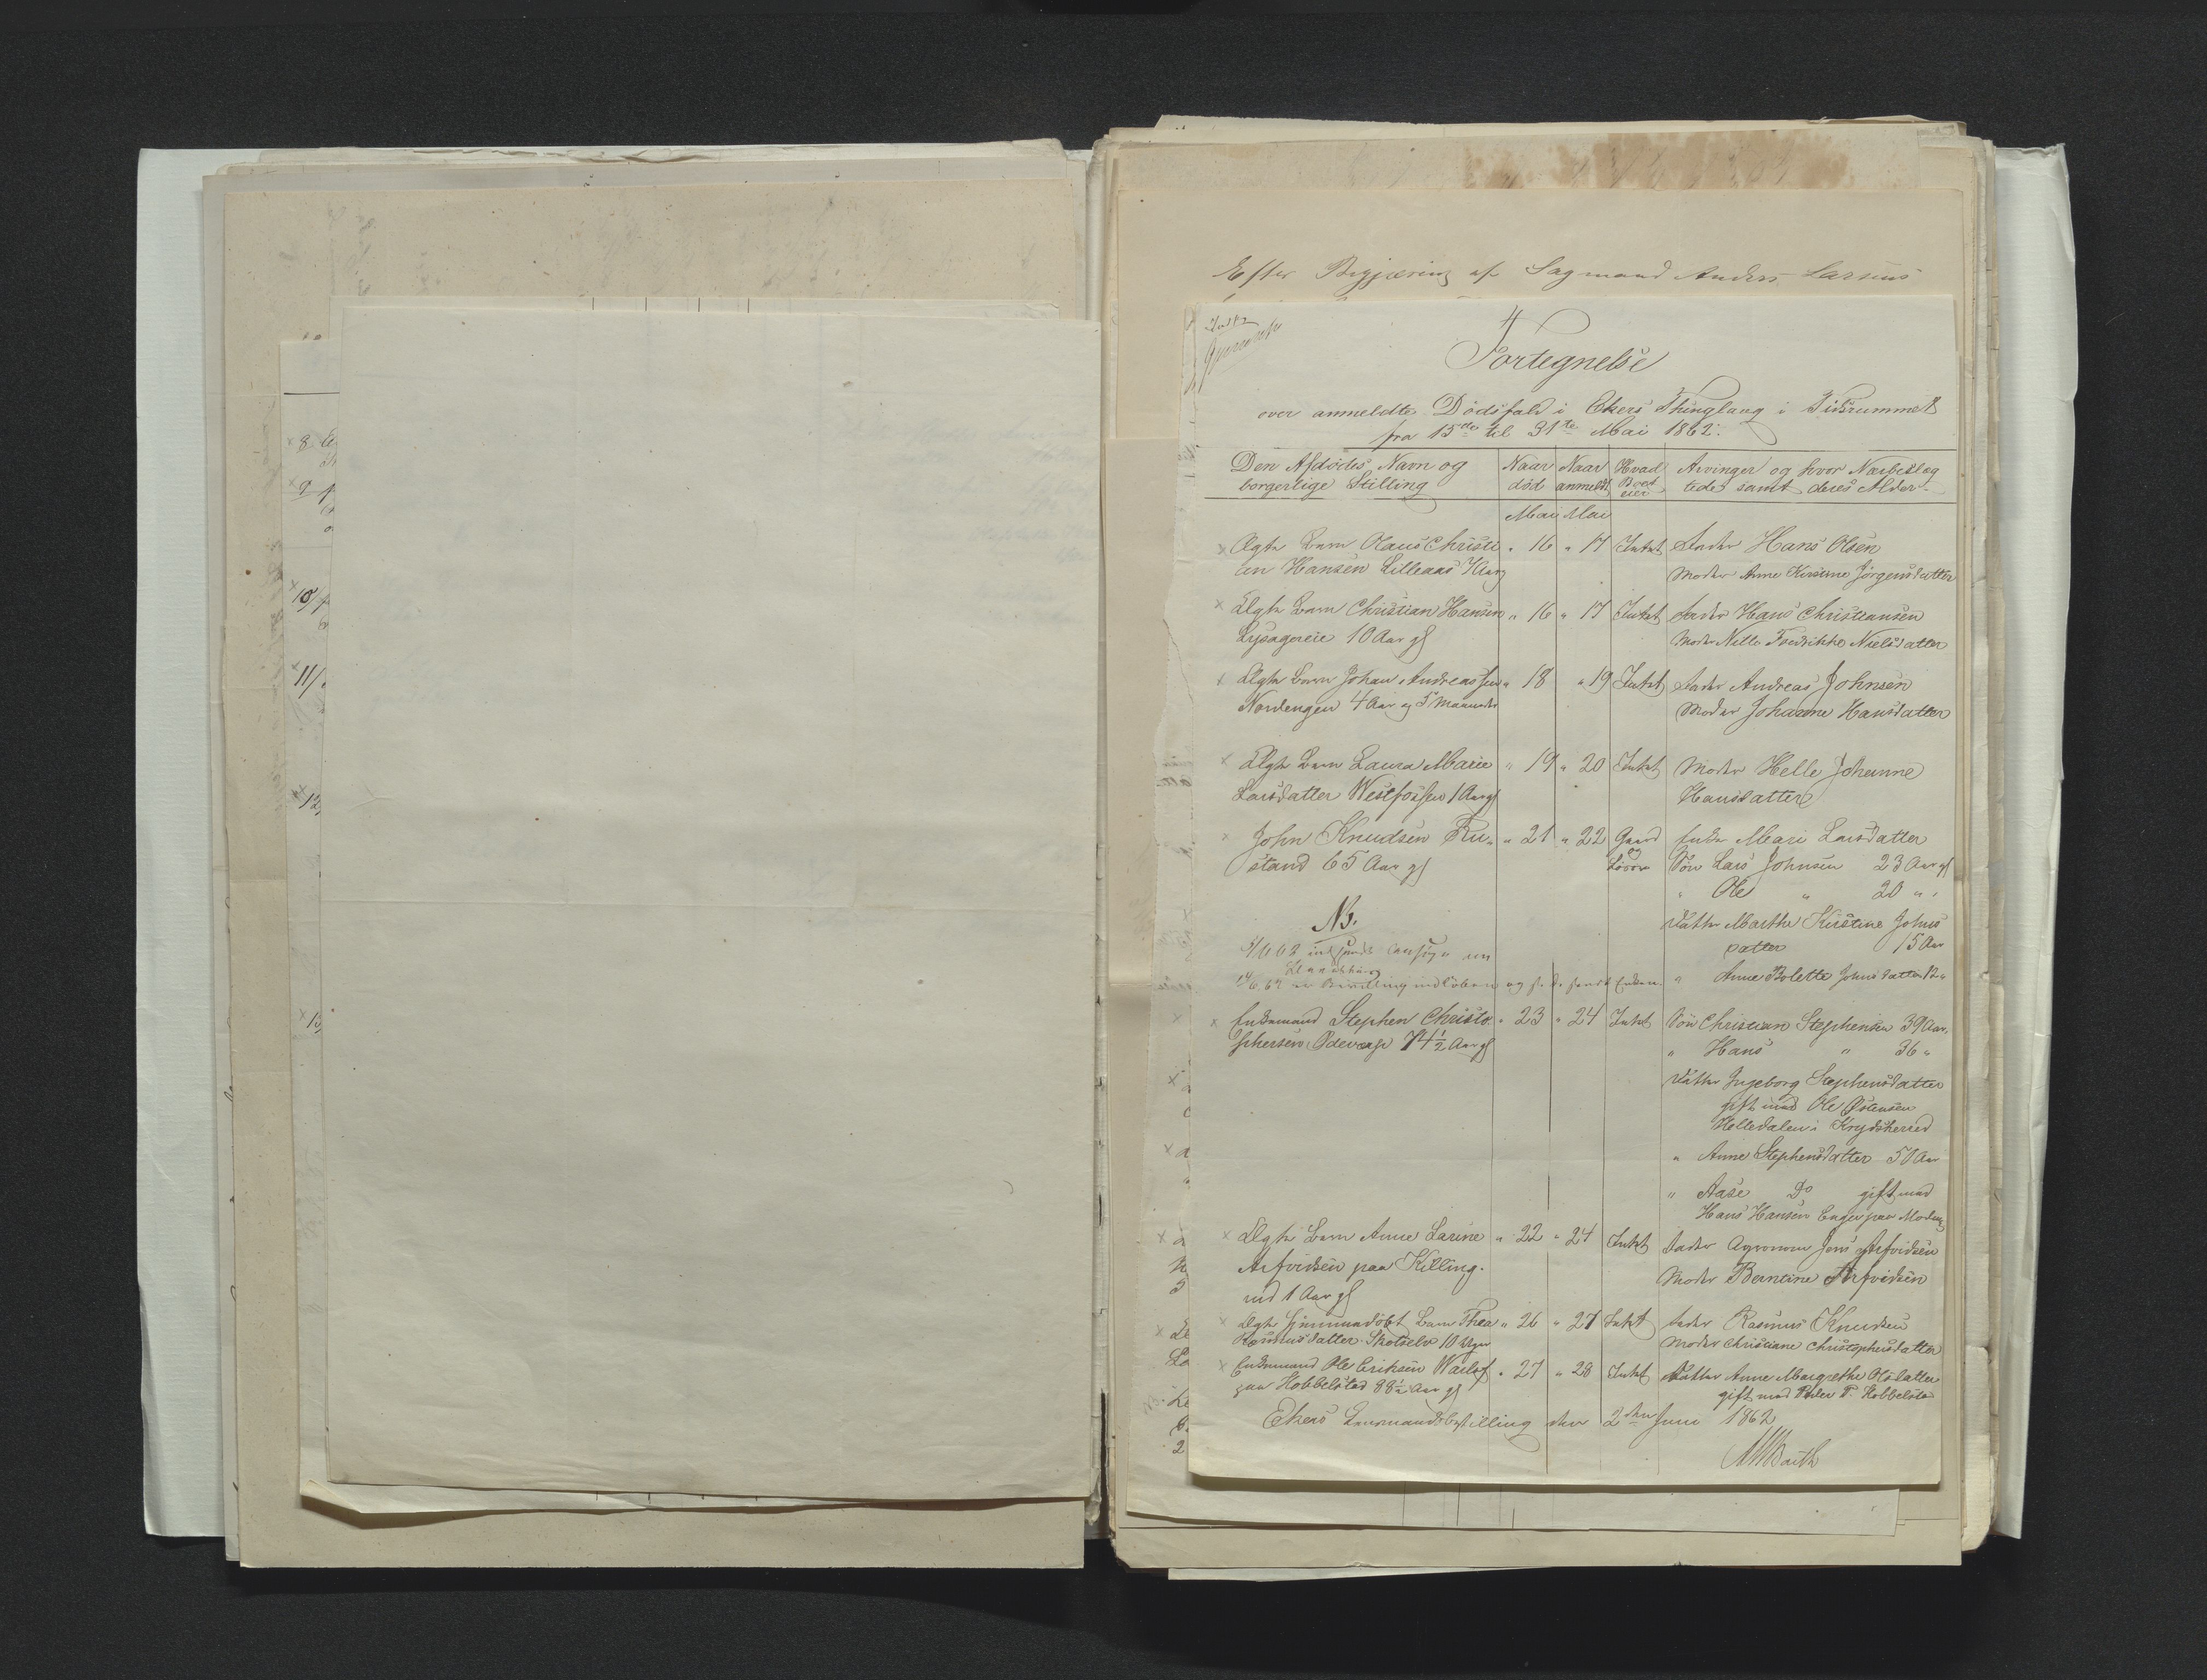 Efter Begjæring af Sagmand Anders Larsens
Fortegnelse
over anmeldte Dödsfald i Ekers Thinglaug i Tidsrummet
fra 15de til 31te Mai 1862.
Den Afdödes Navn og
borgerlige Stilling
Naar
död
Naar
anmeldt
Hvad
Boet
eier
Arvinger og hvor Nærbeslæg
tede samt deres Alder
Mai Mai
x Ægte Barn Olaus Christi " 16 " 17 Intet Fader Hans Olsen
an Hansen Lilleaas Moder Anne Kirstine Jörgensdatter
x Ægte Barn Christian Hansen " 16 " 17 Intet Fader Hans Christiansen
10 Aar gl Moder Nille Fredrikke Nielsdatter
x Ægte Barn Johan Andreassen " 18 " 19 Intet Fader Andreas Johnsen
Nordengen 4 Aar og 5 Maaneder Moder Johanne Hansdatter
x Ægte Barn Laura Marie " 19 " 20 Intet Moder Helle Johanne
Larsdatter Westfossen 1 Aar gl Hansdatter
x John Knudsen Ru- " 21 " 22 Gaard Enke Mari Larsdatter
stand 65 Aar gl og Lösöre Sön Lars Johnsen 23 Aar gl
" Ole " 20 " "
NB. Datter Marthe Kirstine Johns
datter 15 Aar
" Anne Bolette Johnsdatter 12 "
x Enkemand Stephen Christo " 23 " 24 Intet Sön Christian Stephensen 39 Aar
phersen 74 1/2 Aar gl " Hans " 36 "
Datter Ingeborg Stephensdatter
gift med Ole Östensen
Helledalen i Krydsherred
" Anne Stephensdatter 50 Aar
" Aase Do gift med
Hans Hansen Enger paa Modum
x Ægte Barn Anne Larine " 22 " 24 Intet Fader Agronom Jens Arfvidsen
Arfvidsen paa Killing- Moder Berntine Arfvidsen
rud 1 Aar gl
x Ægte hjemmedöbt Barn Thea " 26 " 27 Intet Fader Rasmus Knudsen
Rasmusdatter Skotselv 10 Uger Moder Christiane Christophersdatter
x Enkemand Ole Eriksen " 27 " 28 Intet Datter Anne Margrethe Olsdatter
paa Hobbelstad 88 1/2 Aar gl gift med Peder P. Hobbelstad
Ekers Lensmandsbestilling den 2den Juni 1862